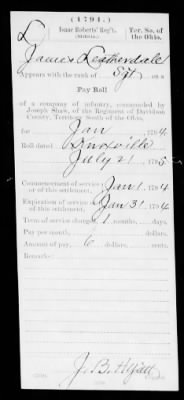 (1794.)
L Isaac Roberts' Reg't. Ter. So. of
(MILITIA.) the Ohio.
James Leatherdale
Appears with the rank of Sgt. on a
Pay Roll
of a company of infantry, commanded by
Joseph Shaw, of the Regiment of Davidson
County, Territory South of the Ohio,
for Jan , 1794
Roll dated Knoxville
July 21 , 1795
Commencement of service or of this settlement, Jan 1, 1794
Expiration of service or of this settlement, Jan 31, 1794
Term of service charged, 1 months, days.
Pay per month, dollars, cents.
Amount of pay, 6 dollars, cents.
Remarks:
J. B. Hyatt